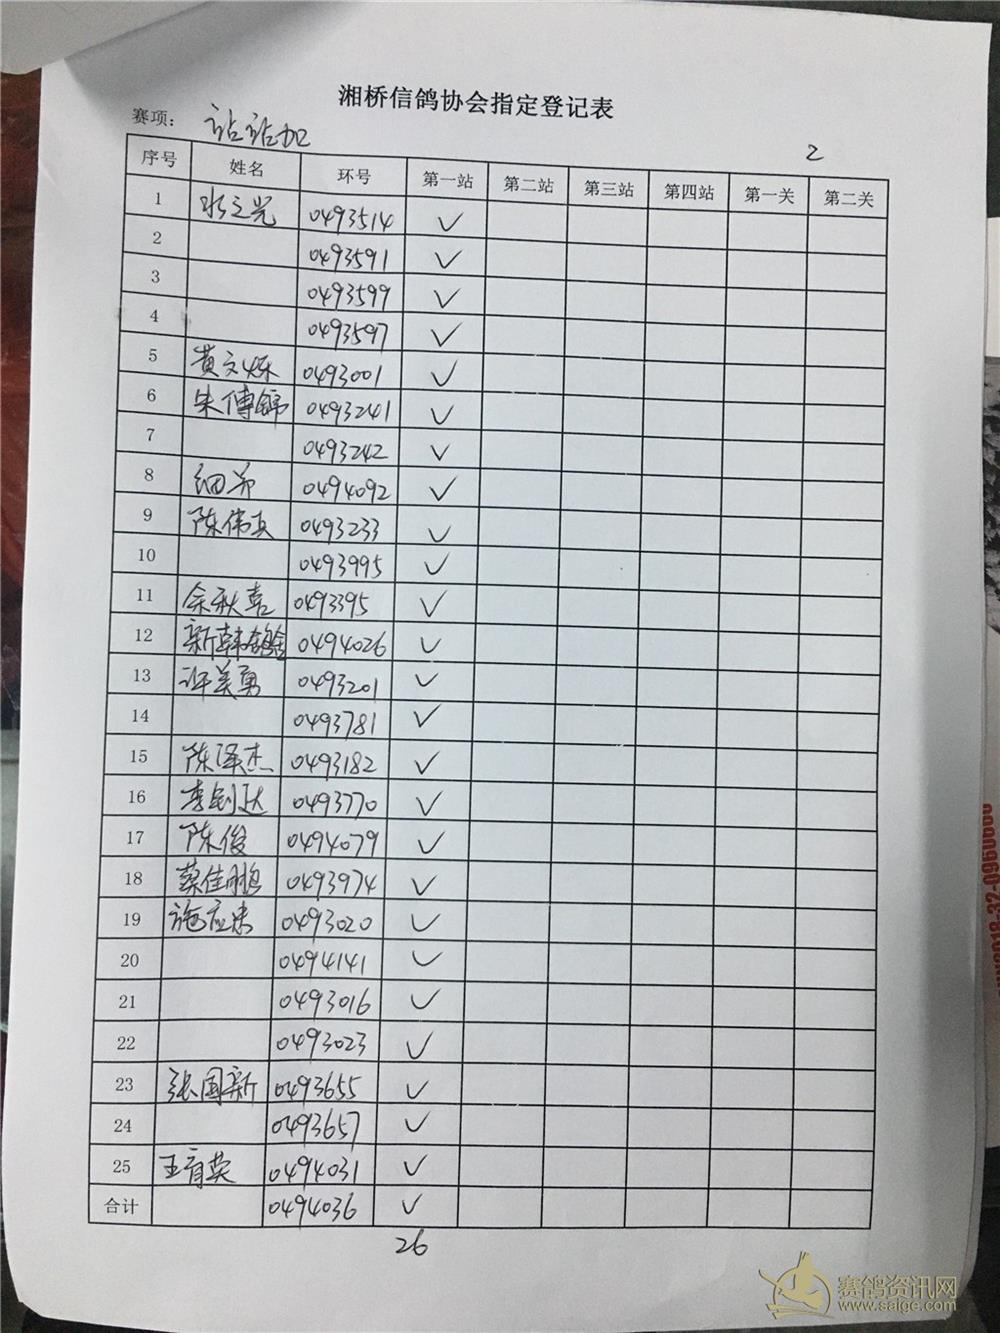 湘桥信鸽协会指定登记表
赛项： 站站加
2
序号 姓名 环号 第一站 第二站 第三站 第四站 第一关 第二关
1 水之光 0493514 ✓
2 0493591 ✓
3 0493599 ✓
4 0493597 ✓
5 黄文烁 0493001 ✓
6 朱传锦 0493241 ✓
7 0493242 ✓
8 细弟 0494092 ✓
9 陈伟真 0493233 ✓
10 0493995 ✓
11 余秋喜 0493395 ✓
12 新韩鸽舍 0494026 ✓
13 许美勇 0493201 ✓
14 0493781 ✓
15 陈泽杰 0493182 ✓
16 李钊达 0493770 ✓
17 陈俊 0494079 ✓
18 蔡佳鹏 0493974 ✓
19 施应忠 0493020 ✓
20 0494141 ✓
21 0493016 ✓
22 0493023 ✓
23 张国新 0493655 ✓
24 0493657 ✓
25 王育英 0494031 ✓
合计 0494036 ✓
26
赛鸽资讯网
www.saige.com